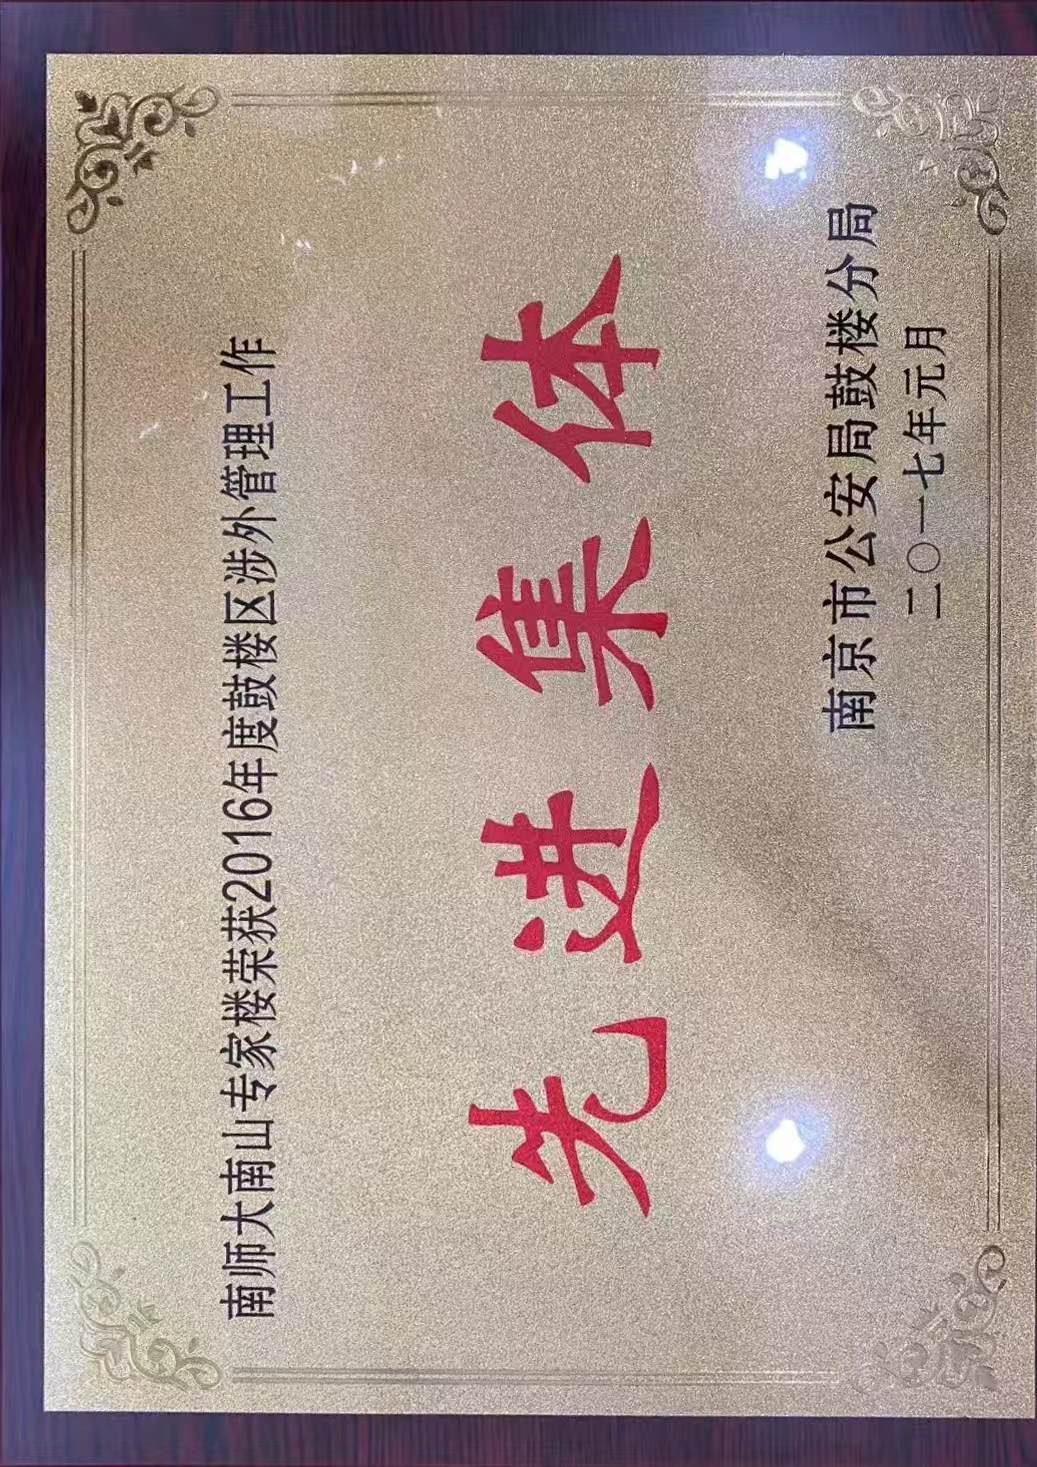 南师大南山专家楼荣获2016年度鼓楼区涉外管理工作
先进集体
南京市公安局鼓楼分局
二〇一七年元月